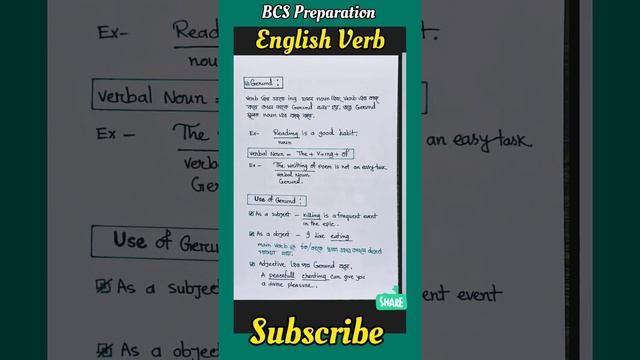 BCS Preparation
English Verb
Gerund :
verb এর সাথে ing যুক্ত
noun এর কাজ করে।
Ex- Reading is a good habit.
noun
verbal Noun = The + V+ing + of
Ex- The writing of Poem is not an easy task
verbal Noun.
Gerund.
Use of Gerund :
As a subject - killing is a frequent event
in the epic.
As a object - I like eating
main verb
Adjective এর পর Gerund
A peacefull chanting can give you
a divine pleasure.
SHARE
Subscribe
Ex- Read
noun
t.
verbal Noun =
Ex - The
verb
Ger
an easy task
Use of Geru
As a subje
ent event
As a obje